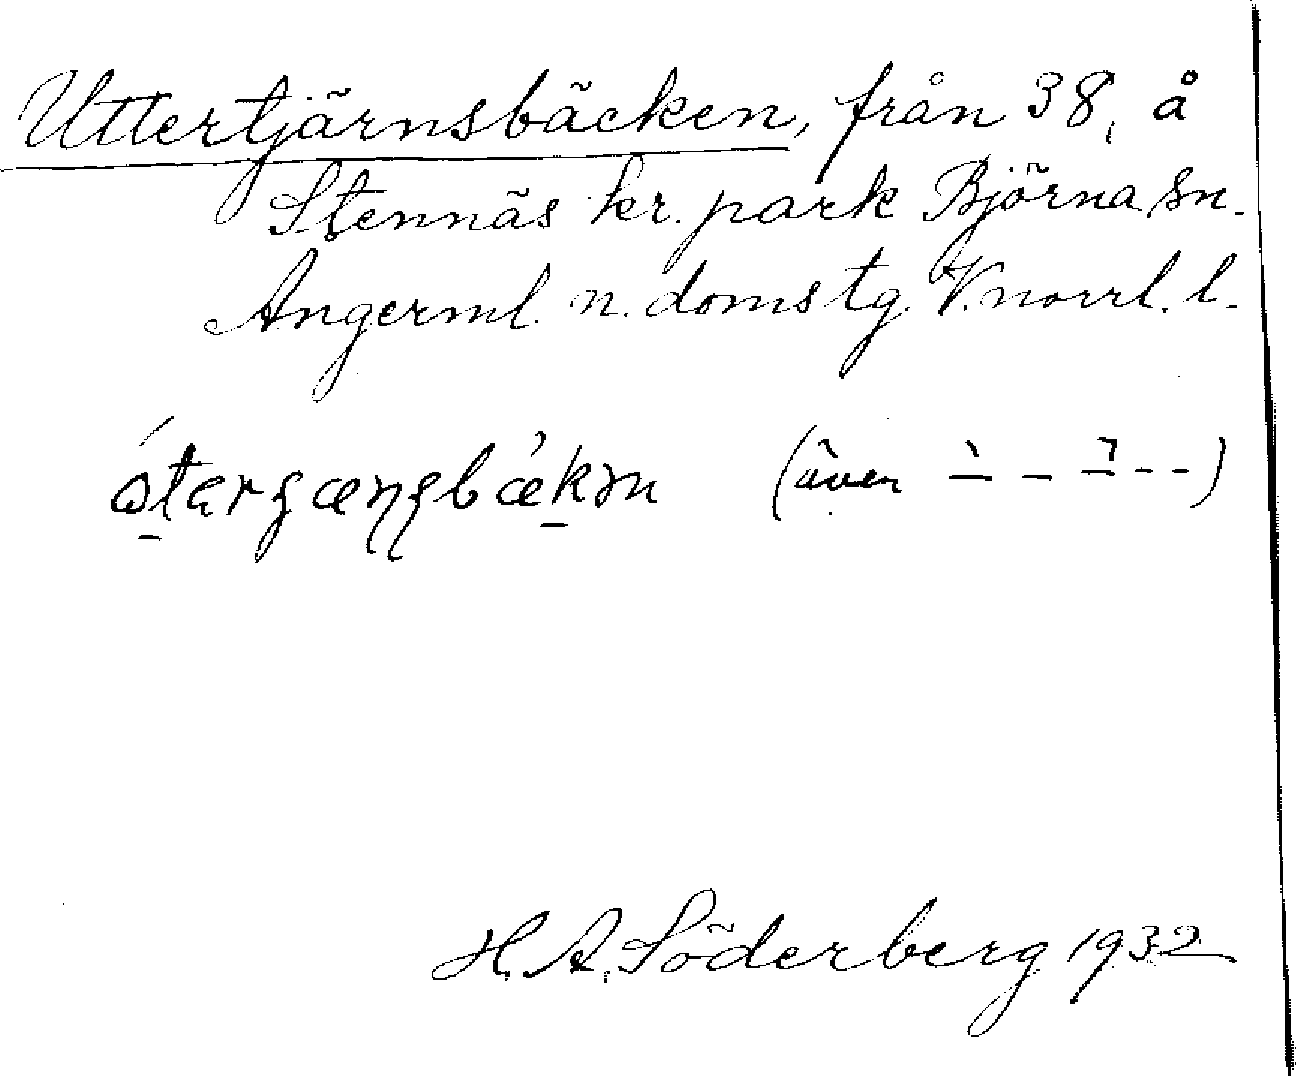 Uttertjärnsbäcken, från 38, å
Stennäs kr. park Björna sn.
Angerml. n. domstg. V.norrl. l.
(även – – – - -)
H. A. Söderberg 1932